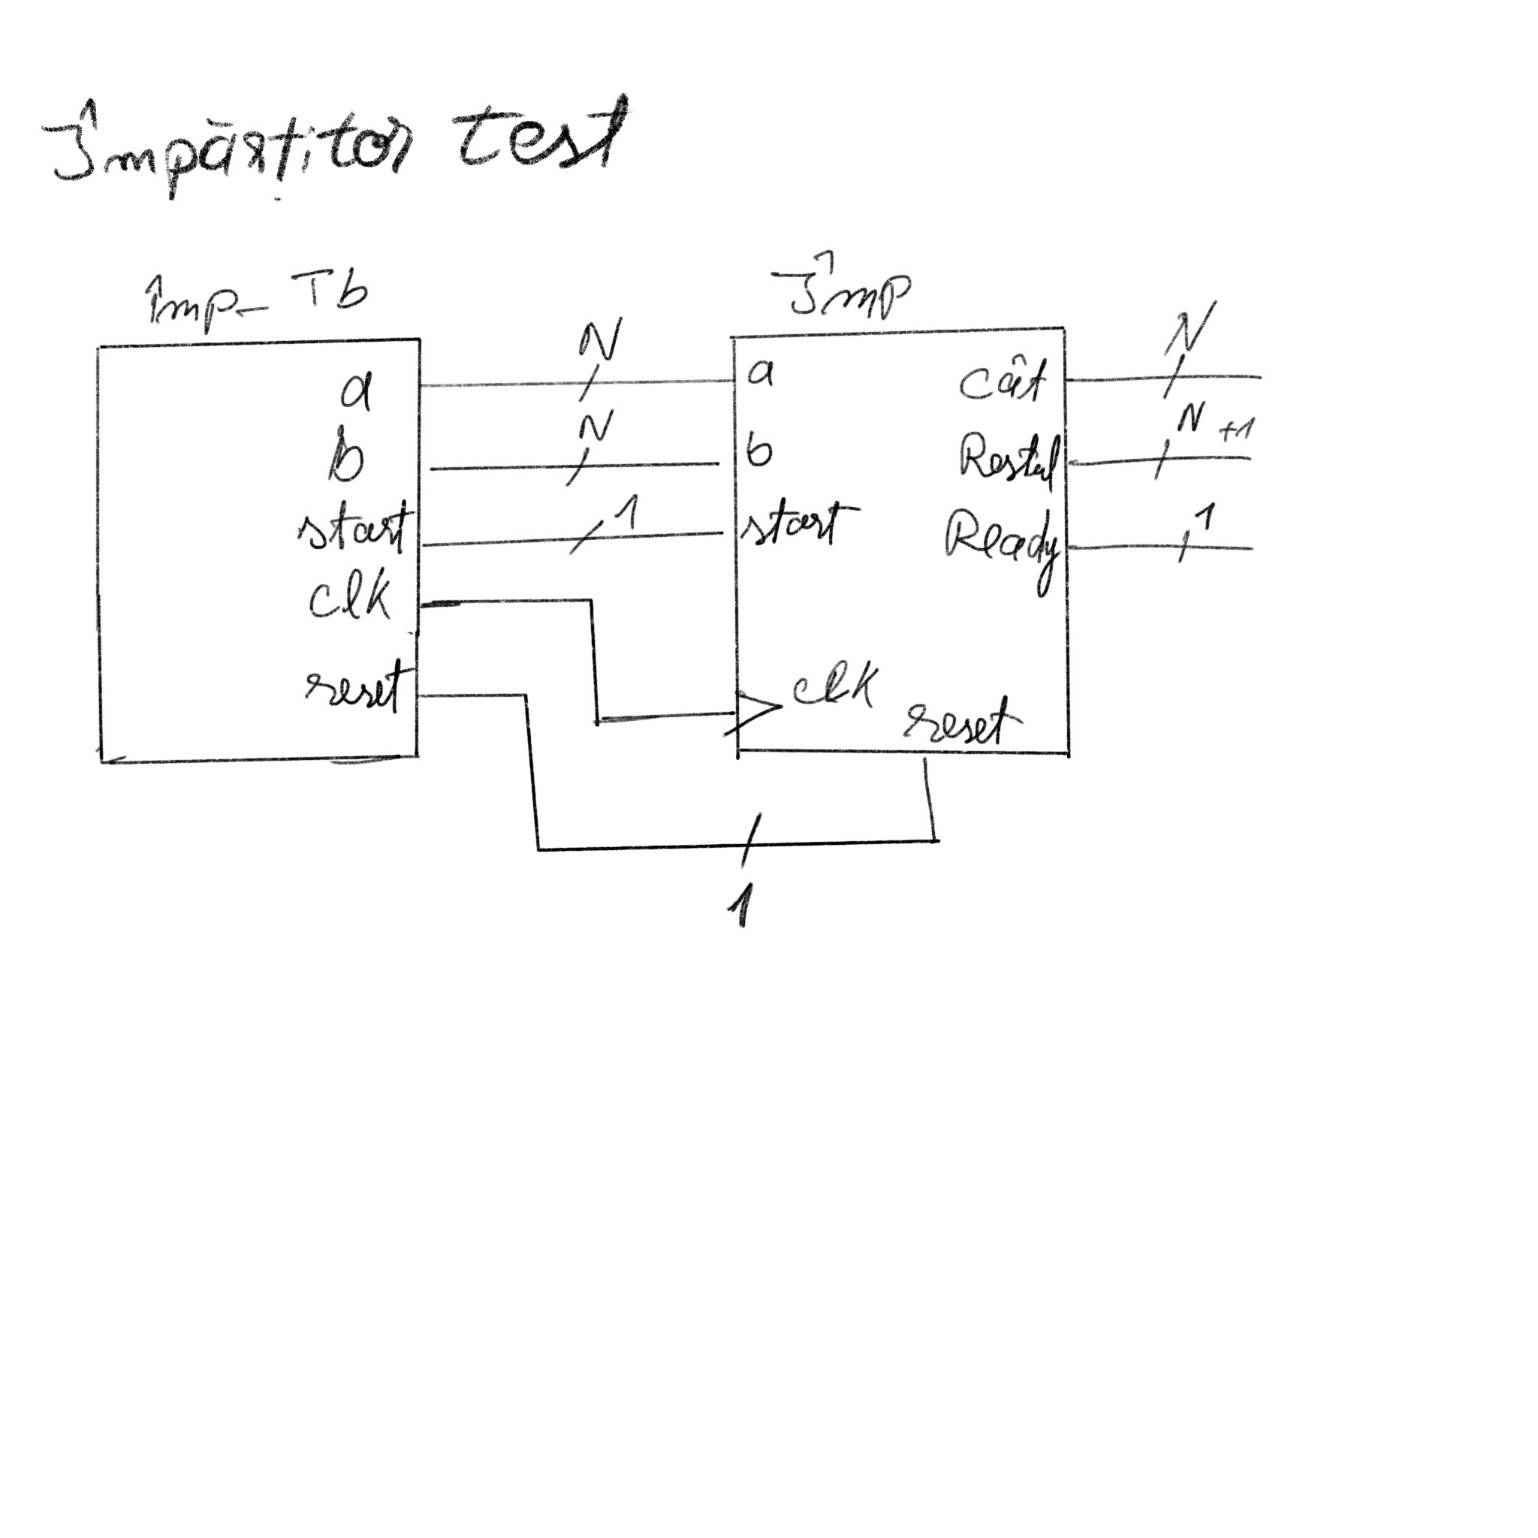 Împărțitor test
Împ_Tb
Împ
a
b
start
clk
reset
N
N
1
a
b
start
clk
reset
Cât
Restul
Ready
N
N+1
1
1